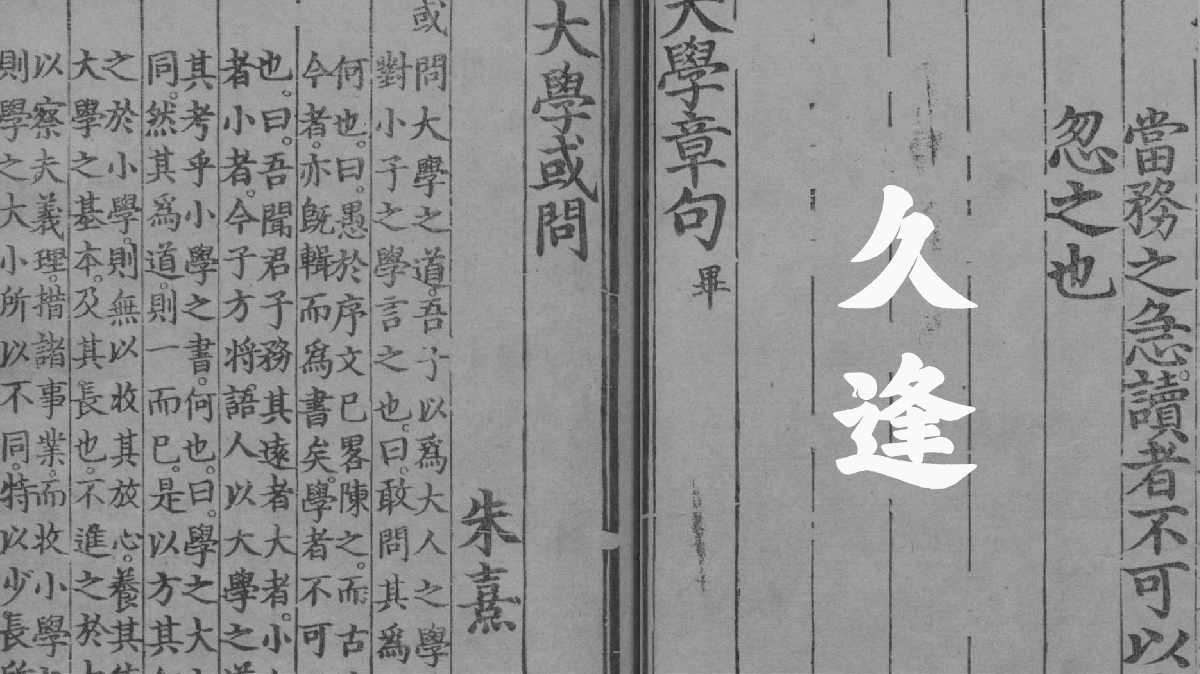 當務之急。讀者不可以
忽之也
久逢
大學章句 畢
大學或問
朱熹
或問大學之道。吾子以爲大人之學
對小子之學言之也。曰。敢問其爲
何也。曰。愚於序文已畧陳之。而古
今者。亦旣輯而爲書矣。學者不可
也。曰。吾聞君子務其遠者大者。小
者小者。今子方將語人以大學之道
其考乎小學之書。何也。曰。學之大
同。然其爲道。則一而已。是以方其
之於小學。則無以收其放心。養其
大學之基本。及其長也。不進之於
以察夫義理。措諸事業。而收小學
則學之大小所以不同。特以少長所